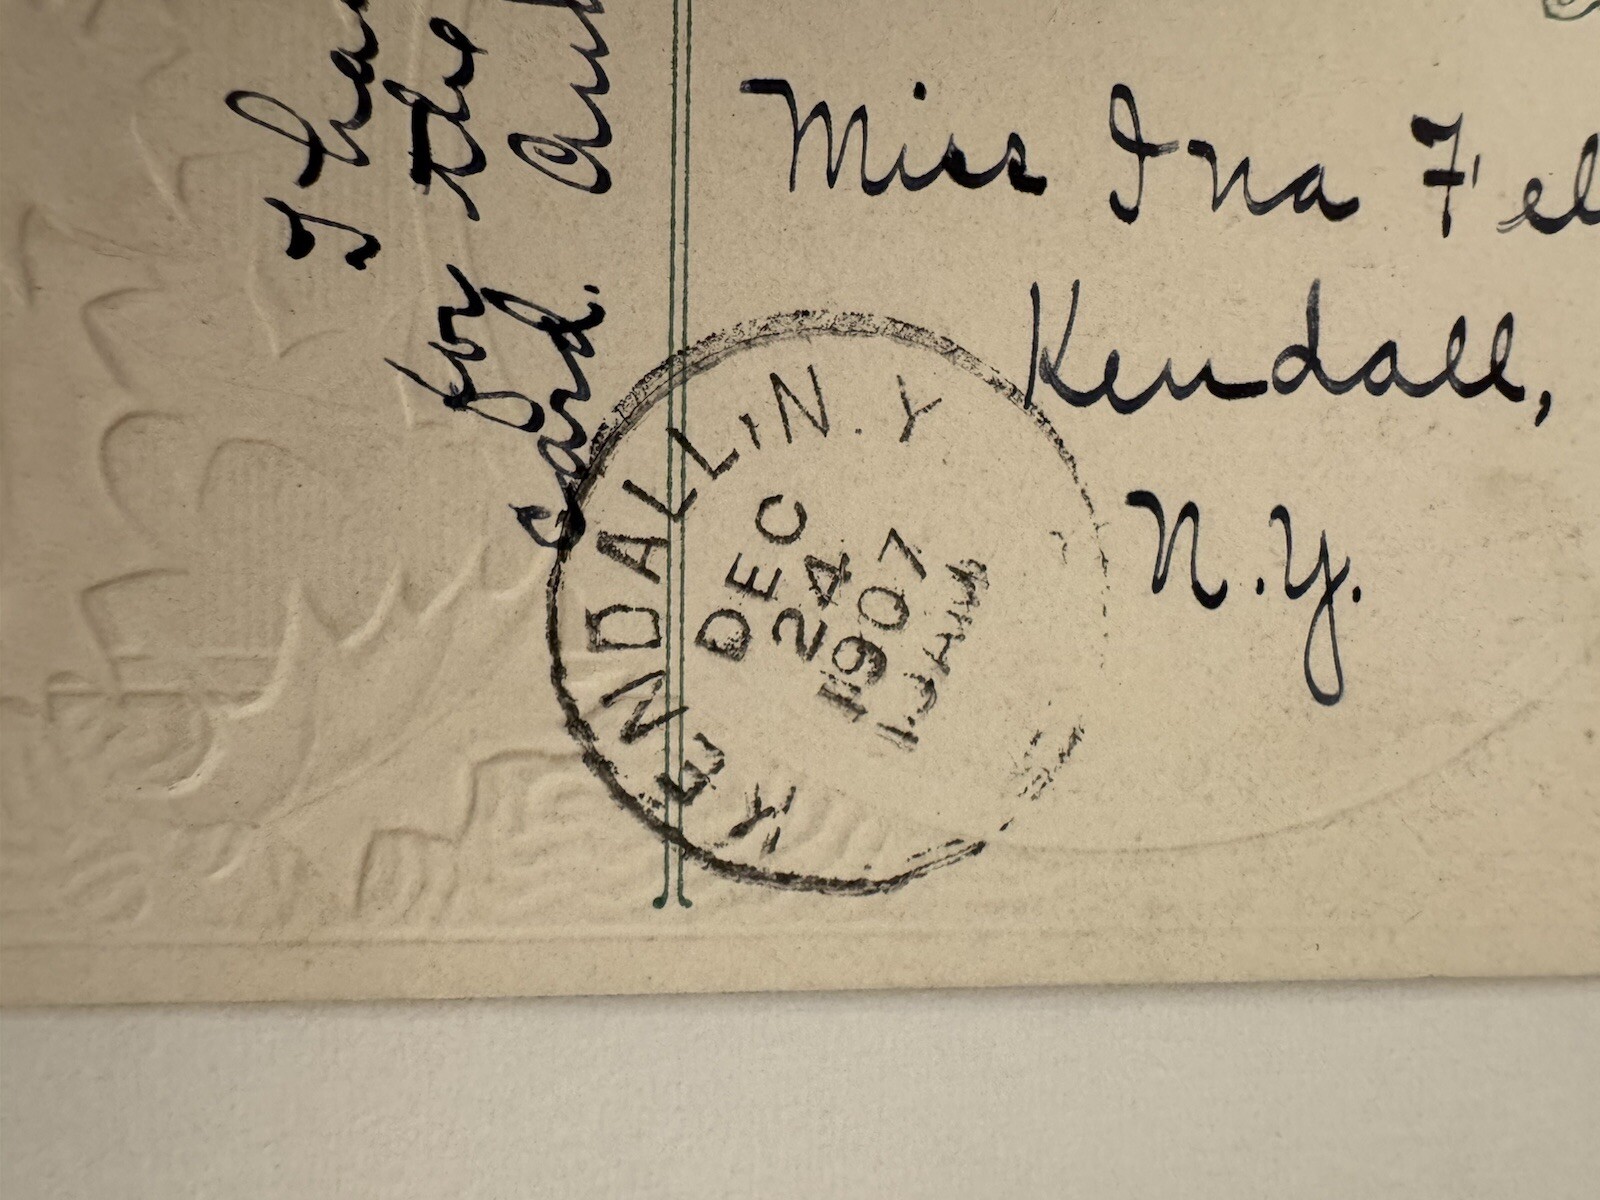 I
for the
card.
Miss Ina
Kendall,
N.Y.
KENDALL, N.Y
DEC
24
1907